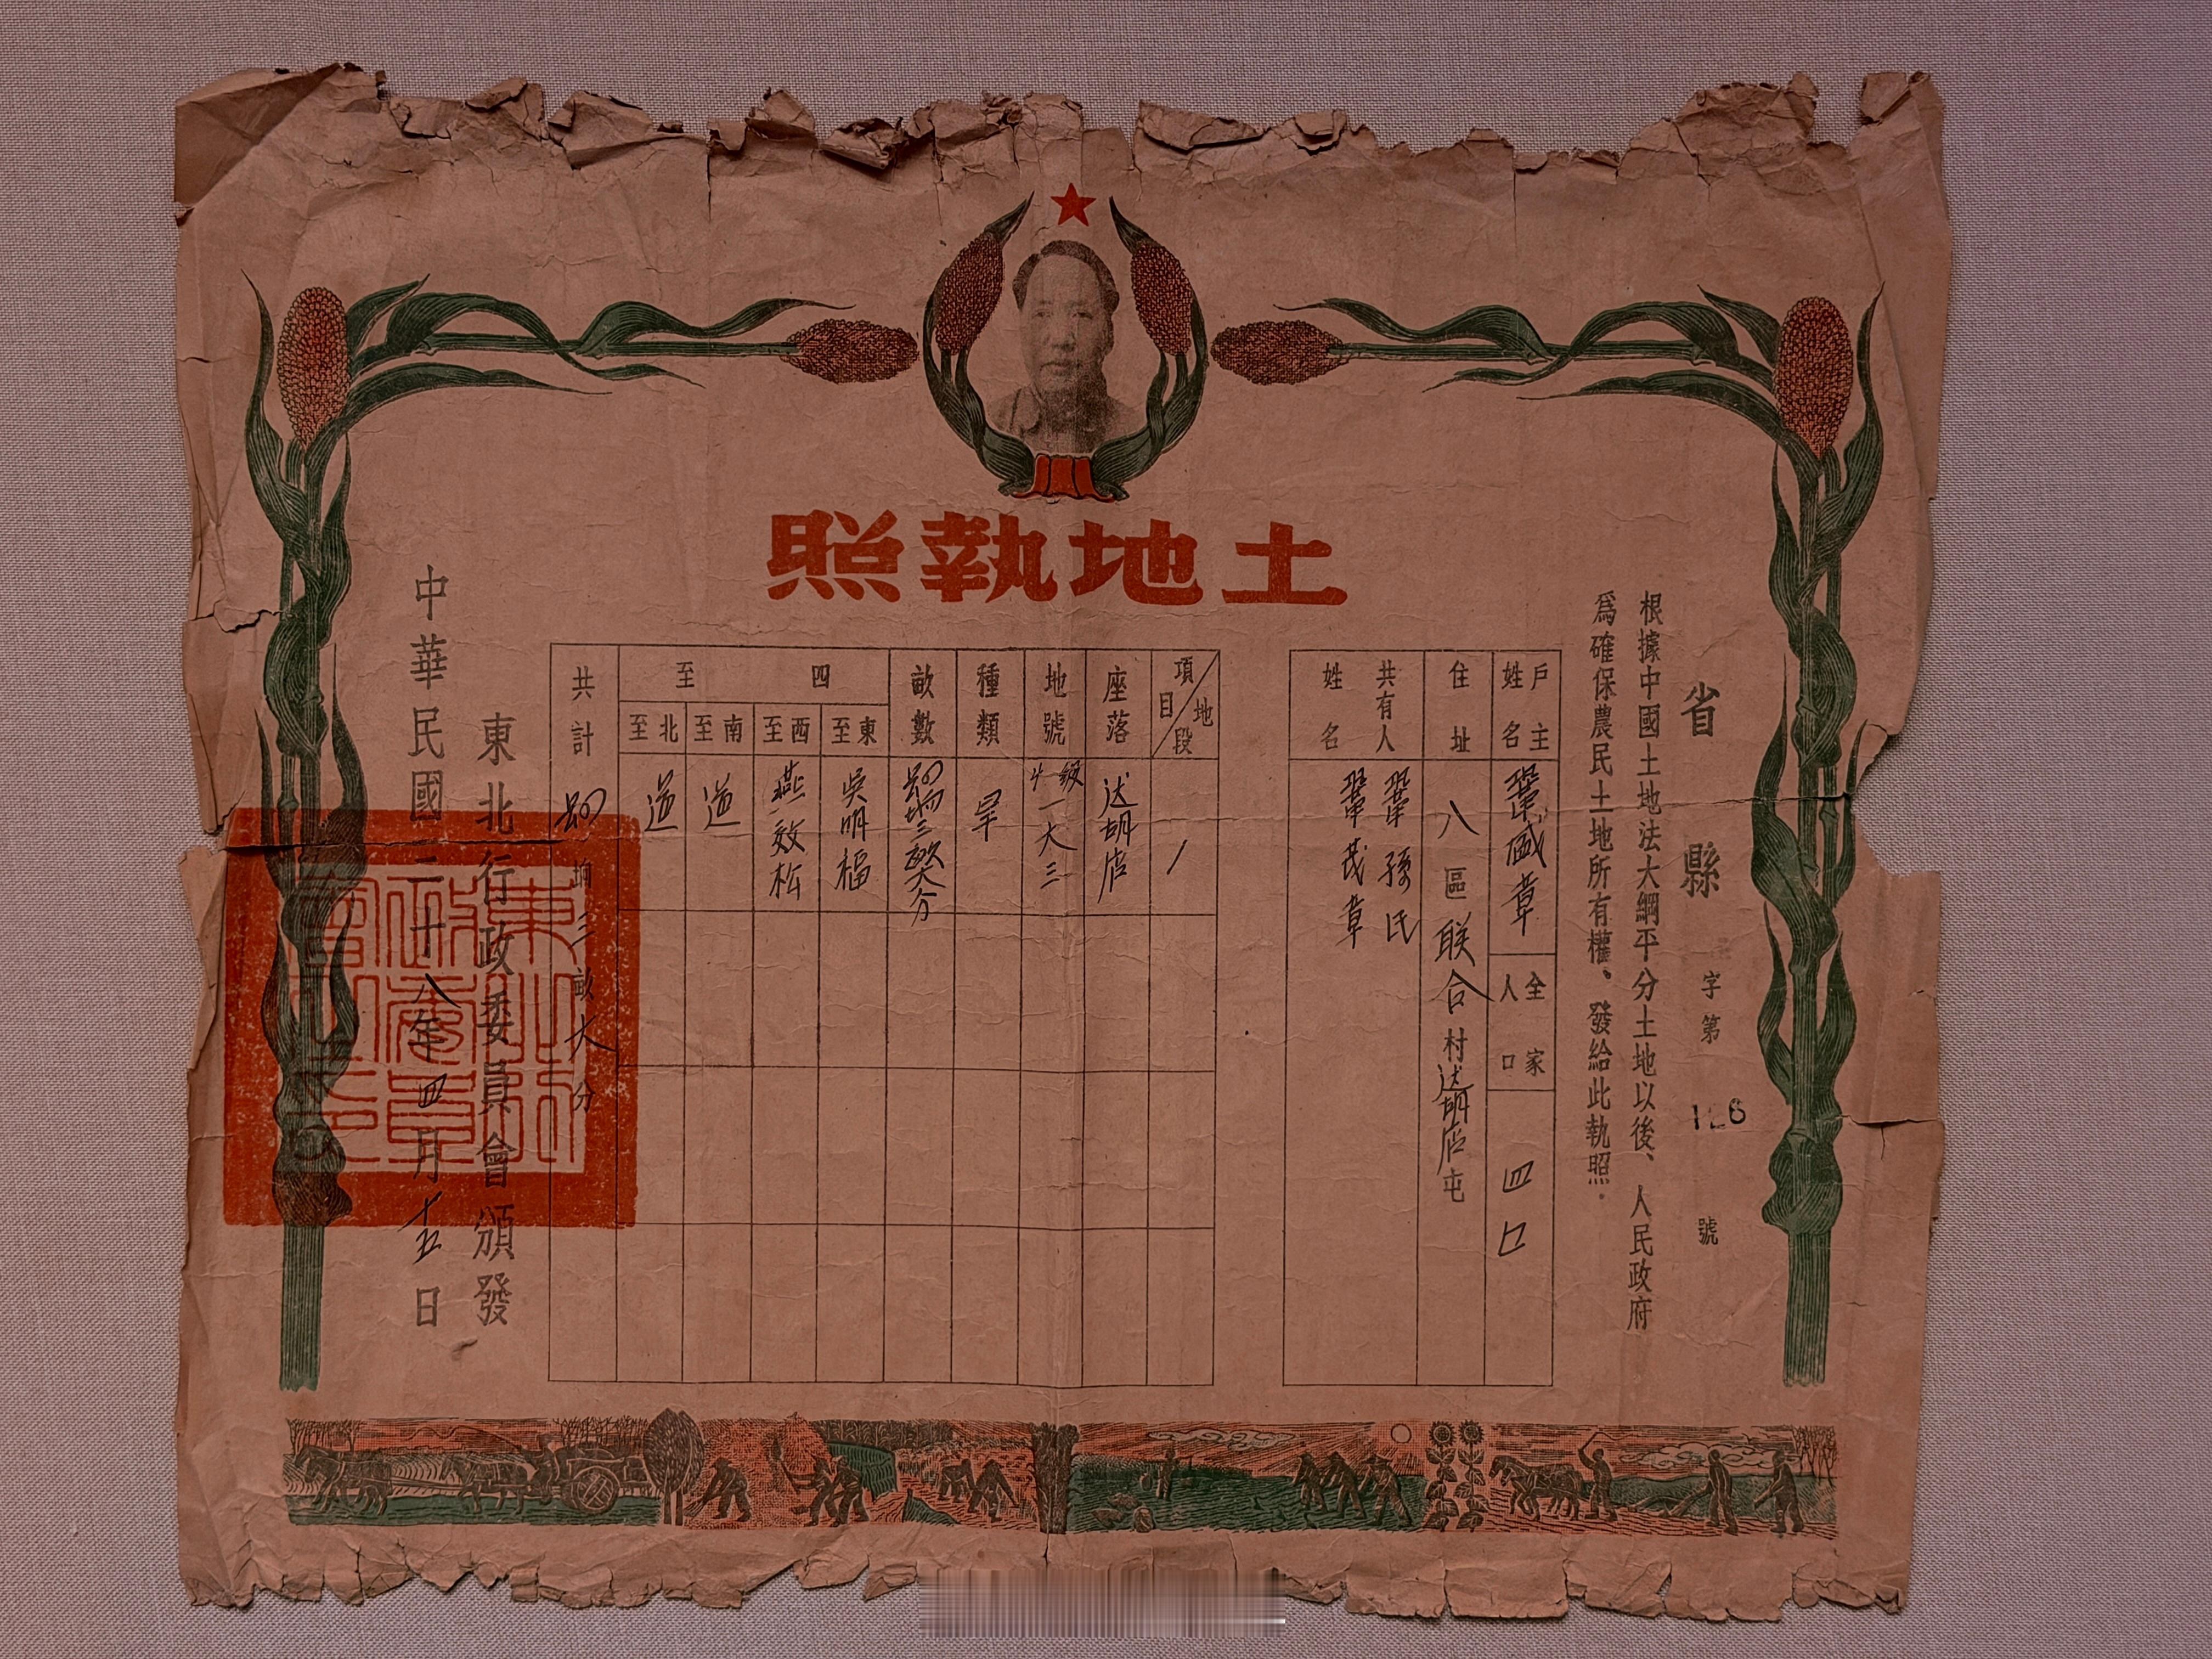 土地執照
省 縣 字第 號
根據中國土地法大綱平分土地以後、人民政府
爲確保農民土地所有權、發給此執照。
戶主姓名
鞏盛章
全家人口
四口
住址
八區联合村达胡店屯
共有人姓名
鞏孫民
鞏茂章
項目 地段
1
座落
达胡店
地號
一六三
種類
旱
畝數
四至
東至
吳明福
西至
燕效松
南至
道
北至
道
共計
垧三畝六分
東北行政委員會頒發
中華民國三十八年四月十五日